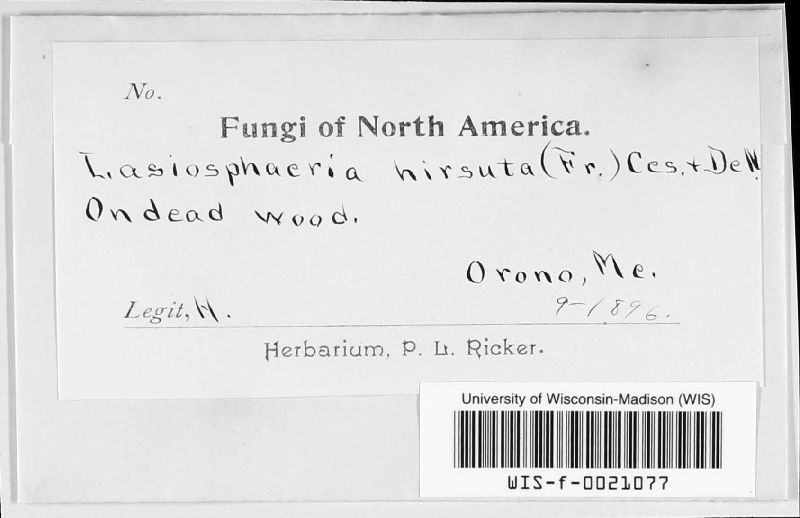 No.
Fungi of North America.
Lasiosphaeria hirsuta (Fr.) Ces. + DeN
On dead wood.
Orono, Me.
Legit, H.
9-1896.
Herbarium, P. L. Ricker.
University of Wisconsin-Madison (WIS)
WIS-f-0021077